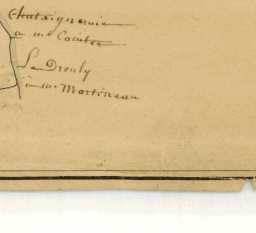 Chataigneraie
a mr Cointre
Le Drouly
à mr Martineau